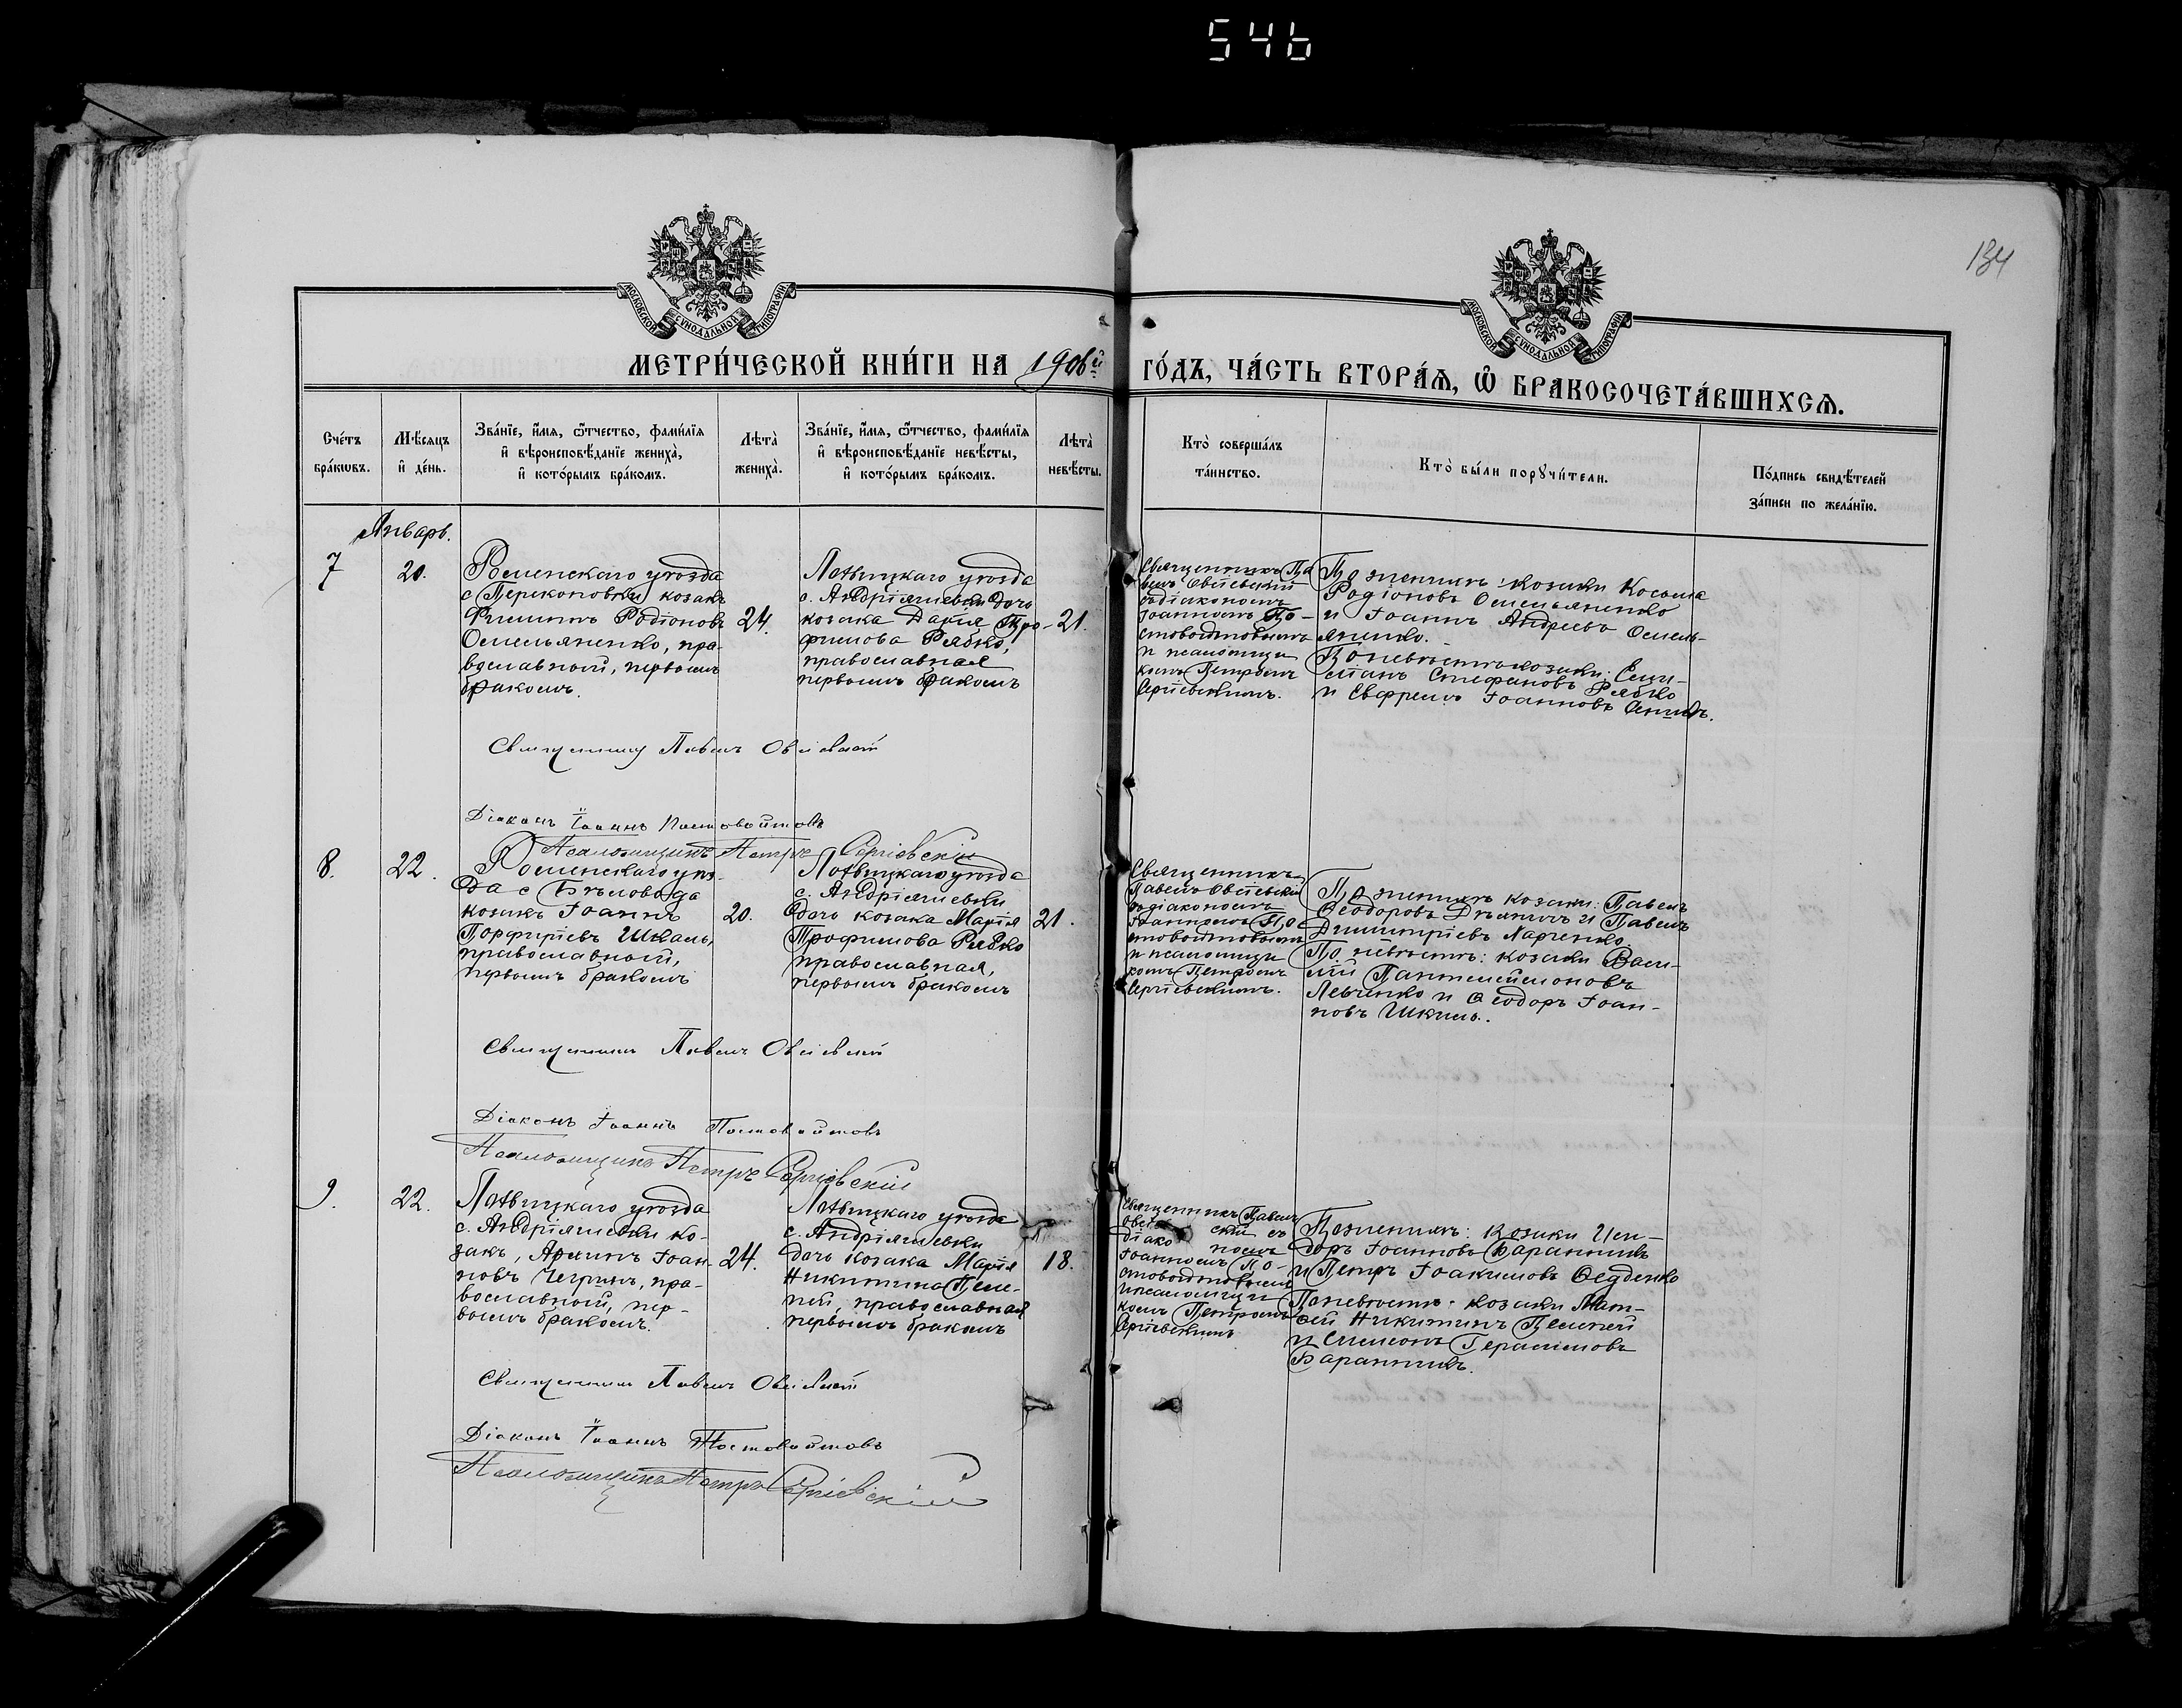 546
134
МОСКОВСКОЙ СѴНОДАЛЬНОЙ ТИПОГРАФІИ
МОСКОВСКОЙ СѴНОДАЛЬНОЙ ТИПОГРАФІИ
МЕТРИ́ЧЕСКОЙ КНИ́ГИ НА 1906й ГО́ДЪ, ЧА́СТЬ ВТОРА́Ѧ, Ѽ БРАКОСОЧЕТА́ВШИХСѦ.
Сче́тъ
бра́кωвъ.
Мѣ́сяцъ
и҆ де́нь.
Зва́нїе, и҆́мя, ѻ҆́тчество, фами́лїя
и҆ вѣроисповѣ́данїе жениха̀,
и҆ кото́рымъ бра́комъ.
Лѣта̀
жениха̀.
Зва́нїе, и҆́мя, ѻ҆́тчество, фами́лїя
и҆ вѣроисповѣ́данїе невѣ́сты,
и҆ кото́рымъ бра́комъ.
Лѣта̀
невѣ́сты.
Кто̀ соверша́лъ
та́инство.
Кто̀ бы́ли порꙋчи́тели.
По́дпись свидѣ́телей
за́писи по жела́нїю.
Январь.
7
20.
Роменскаго уѣзда
с Перекоповки козакъ
Филиппъ Родіоновъ
Омельяненко, пра-
вославный, первымъ
бракомъ.
24.
Лохвицкаго уѣзда
с. Андріяшевки дочь
козака Дарія Тро-
фимова Рябко,
православная
первымъ бракомъ
21.
Священникъ Па
велъ Овсіевскій
съ діакономъ
Іоанномъ По-
стовойтовымъ
и псаломщи
комъ Петромъ
Сергіевскимъ.
По женихѣ: козаки Косьма
Родіоновъ Омельяненко
и Іоаннъ Андреевъ Омель-
яненко.
По невѣстѣ козаки: Сели-
Стефановъ Рябко
и Ефремъ Іоанновъ
Священникъ Павелъ Овсіевскій
Діаконъ Іоаннъ Постовойтовъ
Псаломщикъ Петръ Сергіевскій
8.
22.
Роменскаго уѣз-
да с Бѣловода
козакъ Іоаннъ
Порфиріевъ Шкаль,
православный,
первымъ бракомъ
20.
Лохвицкаго уѣзда
с. Андріяшевки
дочь козака Марія
Трофимова Рябко
православная,
первымъ бракомъ
21.
Священникъ
Павелъ Овсіевскій
съ діакономъ
Іоанномъ По
стовойтовымъ
и псаломщи
комъ Петромъ
Сергіевскимъ.
По женихѣ козаки: Павелъ
Ѳеодоровъ и Павелъ
Димитріевъ Харченко
По невѣстѣ: козаки Васи-
лій Пантелеймоновъ
Левченко и Ѳеодоръ Іоан-
новъ Шкиль.
Священникъ Павелъ Овсіевскій
Діаконъ Іоаннъ Постовойтовъ
Псаломщикъ Петръ Сергіевскій
9.
22.
Лохвицкаго уѣзда
с. Андріяшевки ко-
закъ, Іоан-
новъ Чегринъ, пра-
вославный, пер-
вымъ бракомъ.
24.
Лохвицкаго уѣзда
с. Андріяшевки
дочь козака Марія
Никитина Пели-
пей, православная
первымъ бракомъ
18.
Священникъ Павелъ
Овсі скій съ
діако номъ
Іоанномъ По-
стовойтовымъ
и псаломщи
комъ Петромъ
Сергіевскимъ
По женихѣ: козаки Иси-
доръ Іоанновъ Баранникъ
и Петръ Іоакимовъ Ѳеденко
По невѣстѣ: козаки Мат-
ѳей Никитинъ Пелипей
и Симеонъ Герасимовъ
Баранникъ.
Священникъ Павелъ Овсіевскій
Діаконъ Іоаннъ Постовойтовъ
Псаломщикъ Петръ Сергіевскій